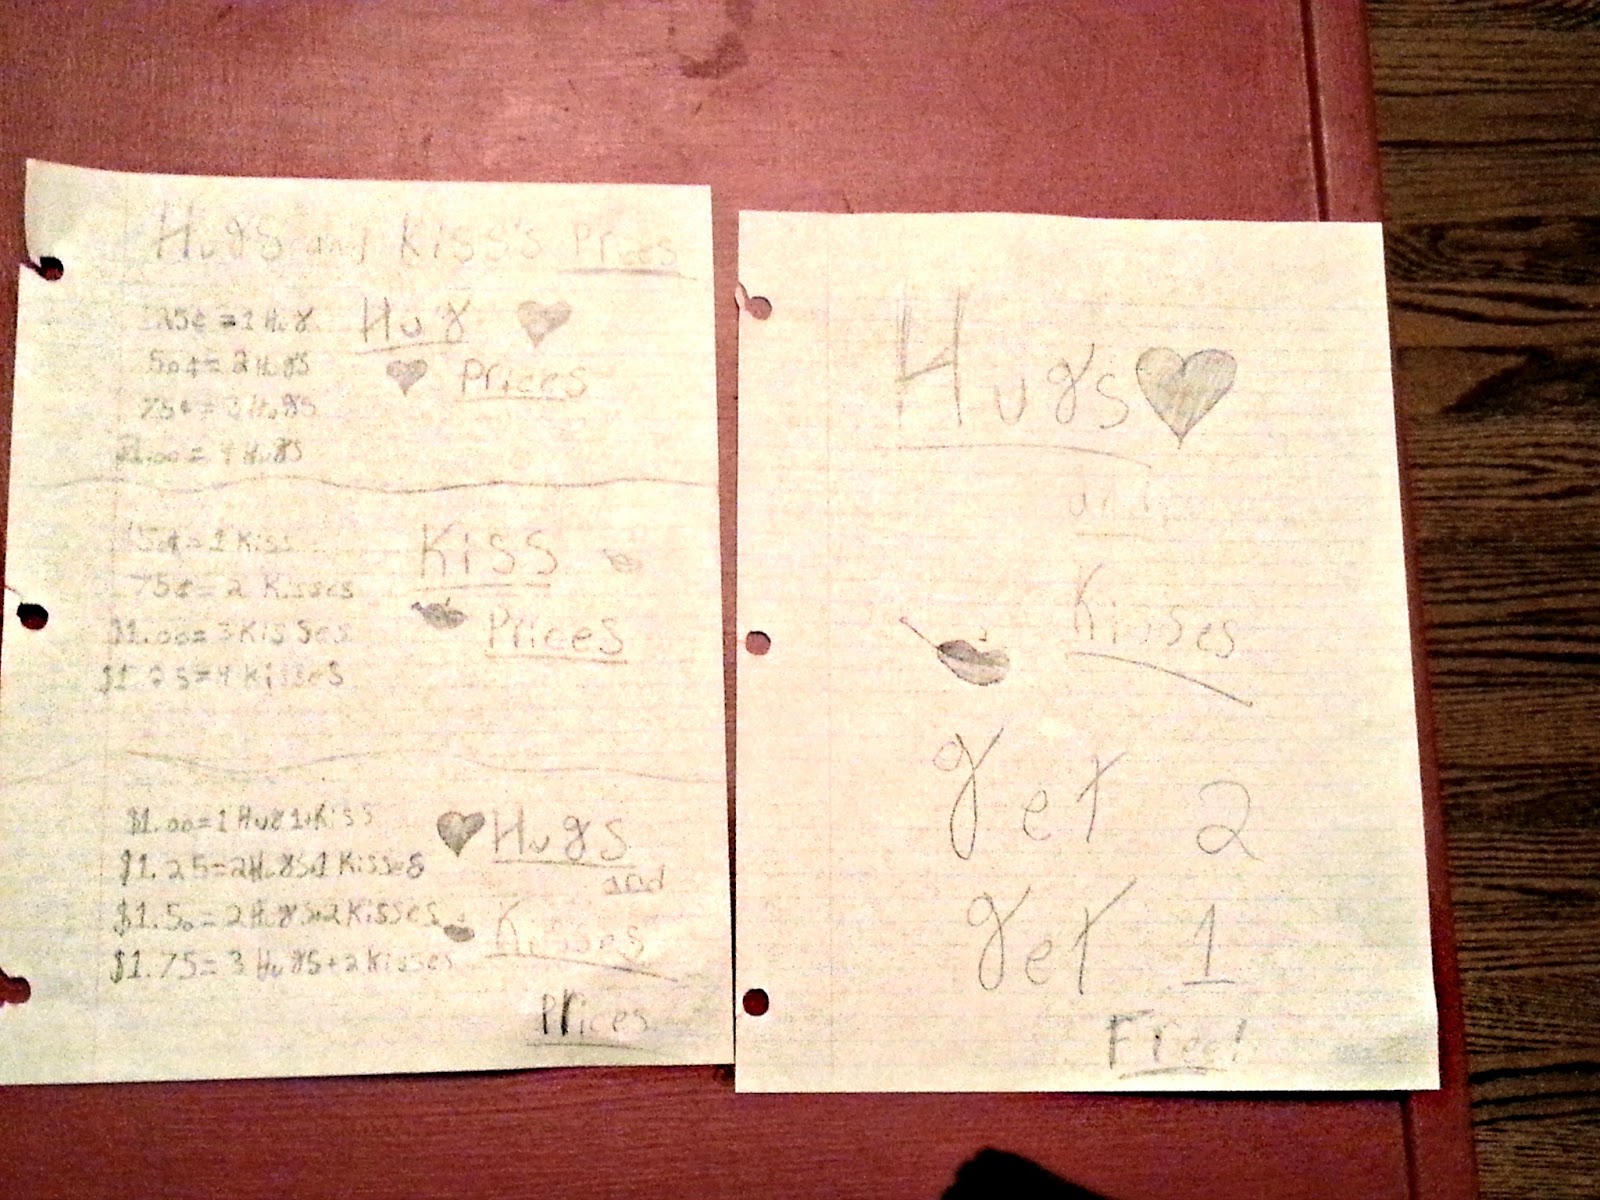 Hugs and Kiss's Prices
25¢ = 1 Hug
50¢ = 2 Hugs
75¢ = 3 Hugs
$1.00 = 4 Hugs
Hug
Prices
50¢ = 1 Kiss
75¢ = 2 Kisses
$1.00 = 3 Kisses
$1.25 = 4 Kisses
Kiss
Prices
$1.00 = 1 Hug 1 Kiss
$1.25 = 2 Hugs 1 Kisses
$1.50 = 2 Hugs 2 Kisses
$1.75 = 3 Hugs + 2 Kisses
Hugs
and
Kisses
Prices
Hugs
and
Kisses
get 2
get 1
Free!